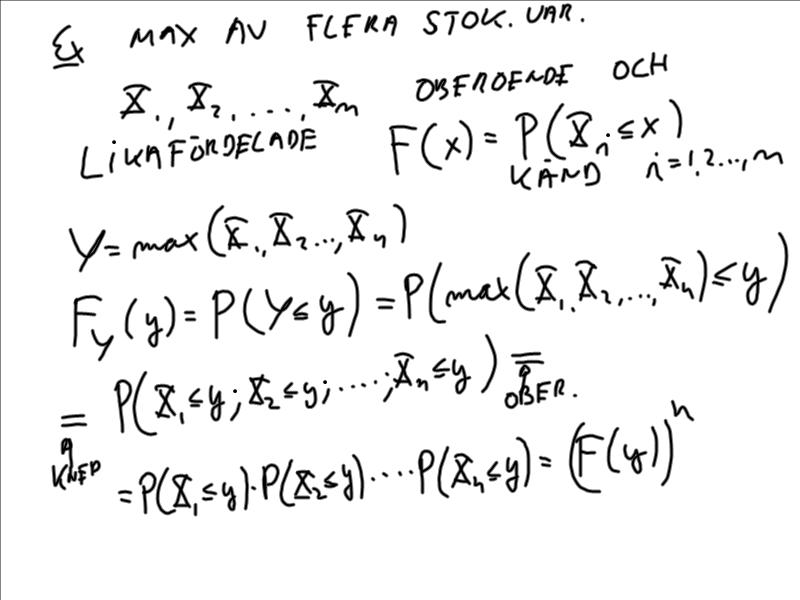 Ex MAX AV FLERA STOK. VAR.
X₁, X₂, ...., Xₙ OBEROENDE OCH
LIKAFÖRDELADE F(x) = P(Xᵢ ≤ x)
KÄND i = 1,2..., n
Y = max(X₁, X₂ ..., Xₙ)
F_Y(y) = P(Y ≤ y) = P(max(X₁, X₂, ..., Xₙ) ≤ y)
= P(X₁ ≤ y; X₂ ≤ y; .....; Xₙ ≤ y) =
KNEP OBER.
= P(X₁ ≤ y) · P(X₂ ≤ y) ···· P(Xₙ ≤ y) = (F(y))ⁿ